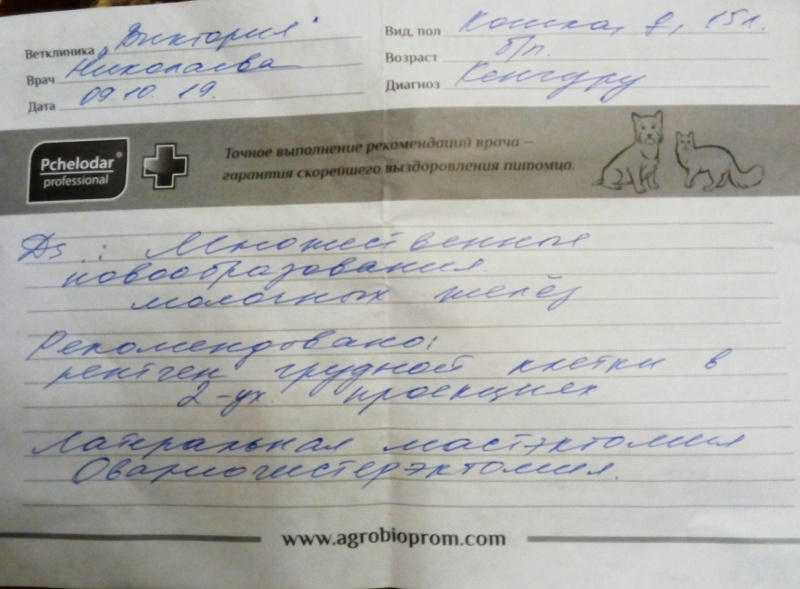 Ветклиника „Виктория"
Врач Николаева
Дата 09.10.19.
Вид, пол Кошка, ♀, 15 л.
Возраст б/п.
Диагноз Кенгуру
Pchelodar®
professional
Точное выполнение рекомендаций врача –
гарантия скорейшего выздоровления питомца.
Ds.: Множественные
новообразования
молочных желёз
Рекомендовано:
рентген грудной клетки в
2-ух проекциях
Латеральная мастэктомия
Овариогистерэктомия.
www.agrobioprom.com